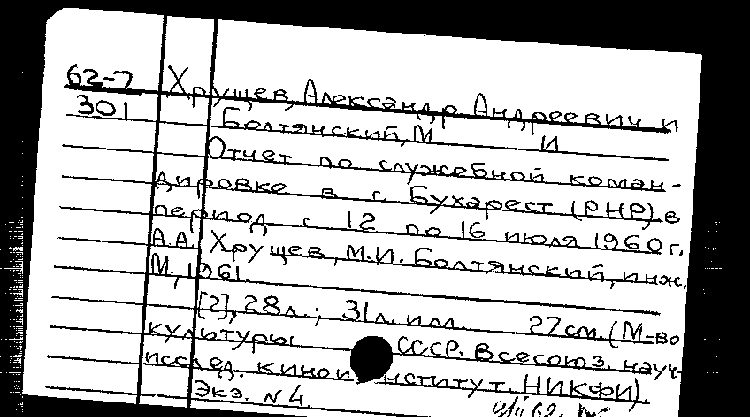 62-7 Хрущев, Александр Андреевич и
301 Болтянский, М И
Отчет по служебной коман-
дировке в г. Бухарест (РНР) в
период с 12 по 16 июля 1960 г.
А.А. Хрущев, М.И. Болтянский, инж.
М, 1961.
[2], 28 л.; 31 л. илл. 27 см. (М-во
культуры СССР. Всесоюз. науч-
исслед. кино институт. НИКФИ).
Экз. N 4.